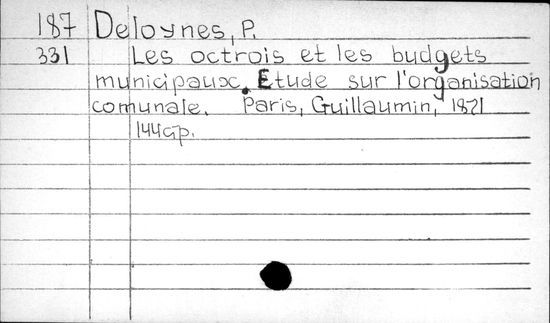 187 Deloynes, P.
331 Les octrois et les budgets
municipaux. Etude sur l'organisation
comunale. Paris, Guillaumin, 1871
144 p.